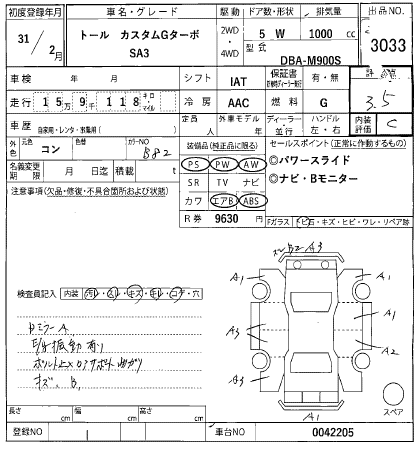 初度登録年月
車名・グレード
駆動
ドア数・形状
排気量
出品NO.
31 / 2月
トール カスタムGターボ
SA3
2WD
・
4WD
5 W
1000 cc
型式
DBA-M900S
3033
車検 年 月
シフト
IAT
保証書
有・無
評
3.5
走行 15万9千118 キロ・マイル
冷房
AAC
燃料
G
車歴
自家用・レンタ・
定員
人
外車モデル
年
ディーラー・並行
ハンドル
左・右
内装
C
外色
元色
コン
カラーNO
B82
装備品(純正品に限る)
セールスポイント(正常に作動するもの)
名義変更期限
月 日迄
積載
t
PS PW AW
◎パワースライド
注意事項(欠品・修復・不具合箇所および状態)
SR TV ナビ
◎ナビ・Bモニター
カワ エアB ABS
R券 9630 円
Fガラス 石・キズ・ヒビ・ワレ・リペア跡
X2 B2 A3
検査員記入
内装 汚レ・スレ・キズ・キレ・コゲ・穴
A1
A1
A1
A3
A3
A2
A3
A1
A1
スペア
ミラーA
振動有り
キズ、B
長さ cm
幅 cm
高さ cm
登録NO
車台NO
0042205